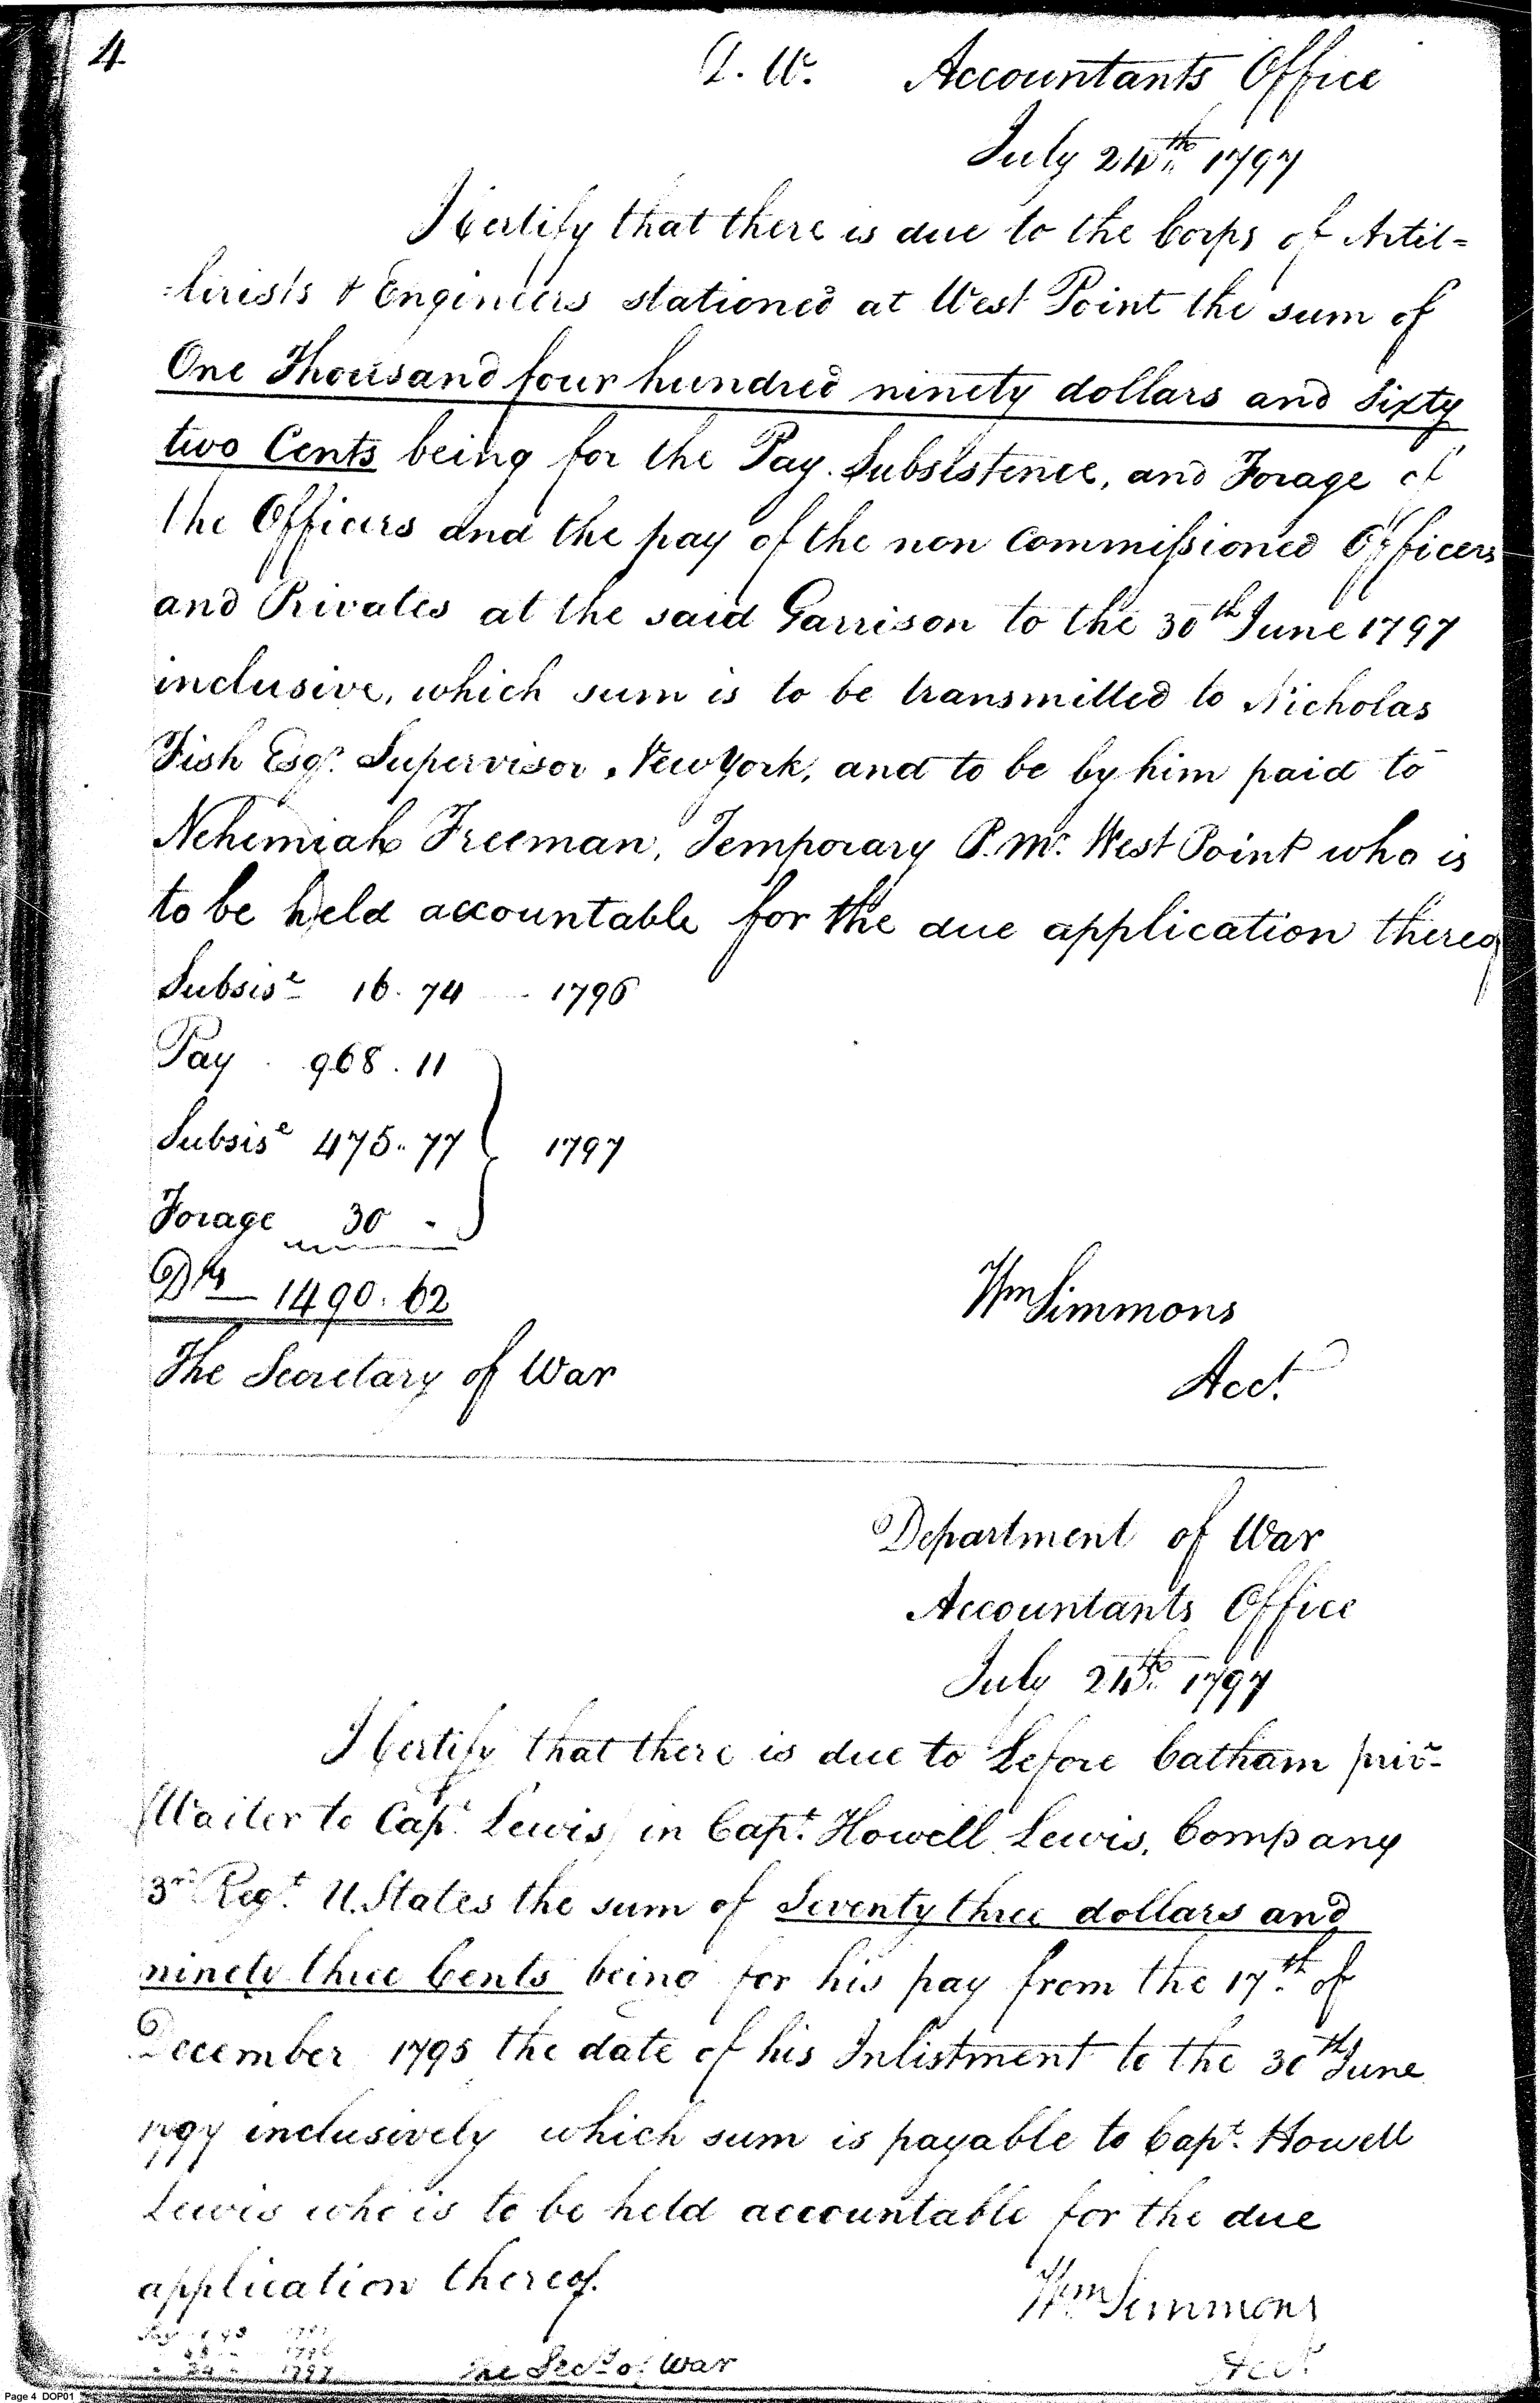 4
D. W. Accountants Office
July 24th 1797
I Certify that there is due to the Corps of Artil=
=lirists & Engineers stationed at West Point the sum of
One Thousand four hundred ninety dollars and Sixty
two Cents being for the Pay. Subsistence, and Forage of
the Officers and the pay of the non Commissioned Officers
and Privates at the said Garrison to the 30th June 1797
inclusive, which sum is to be transmitted to Nicholas
Fish Esqr. Supervisor, New York, and to be by him paid to
Nehemiah Freeman, Temporary P. Mr. West Point who is
to be held accountable for the due application thereof
Subsise 16. 74 - 1796
Pay . 968 . 11
Subsise 475. 77 } 1797
Forage 30 -
Drs 1490. 62
Wm Simmons
The Secretary of War
Acct.
Department of War
Accountants Office
July 24th. 1797
I Certify that there is due to Lefore Catham priv-
(Waiter to Capt. Lewis) in Capt. Howell Lewis, Company
3rd Regt. U. States the sum of Seventy three dollars and
ninety three Cents being for his pay from the 17th. of
December 1795 the date of his Inlistment to the 30th June
1797 inclusively which sum is payable to Capt. Howell
Lewis who is to be held accountable for the due
application thereof.
Wm Simmons
1796
24 1797
The Secy of War
Acct.
Page 4 DOP01